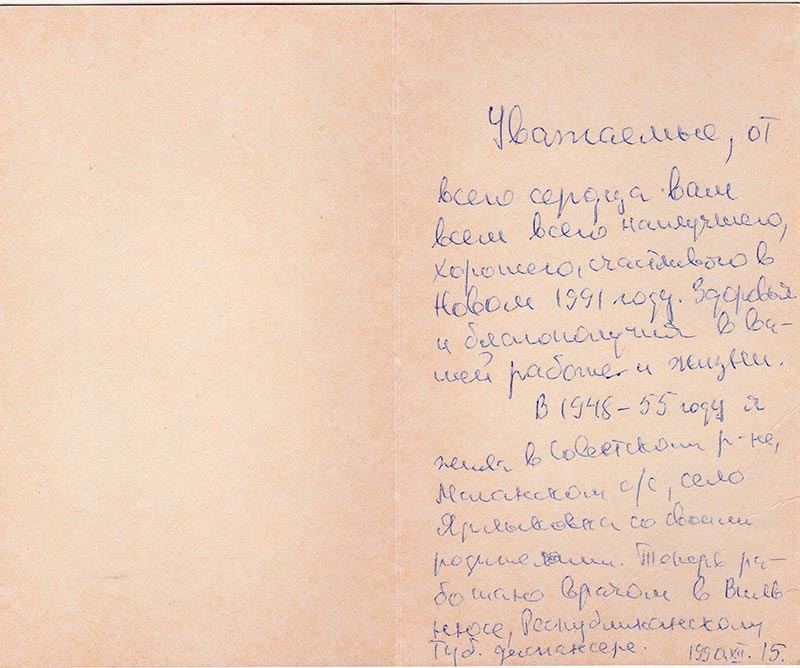 Уважаемые, от
всего сердца вам
всем всего наилучшего,
хорошего, счастливого в
Новом 1991 году. Здоровья
и благополучия в ва-
шей работе и жизни.
В 1948-55 году я
жила в Советском р-не,
с/с, село
со своими
родителями. Теперь ра-
ботаю врачом в Виль-
нюсе, Республиканскому
Туб. диспансере. 1990.XII.15.